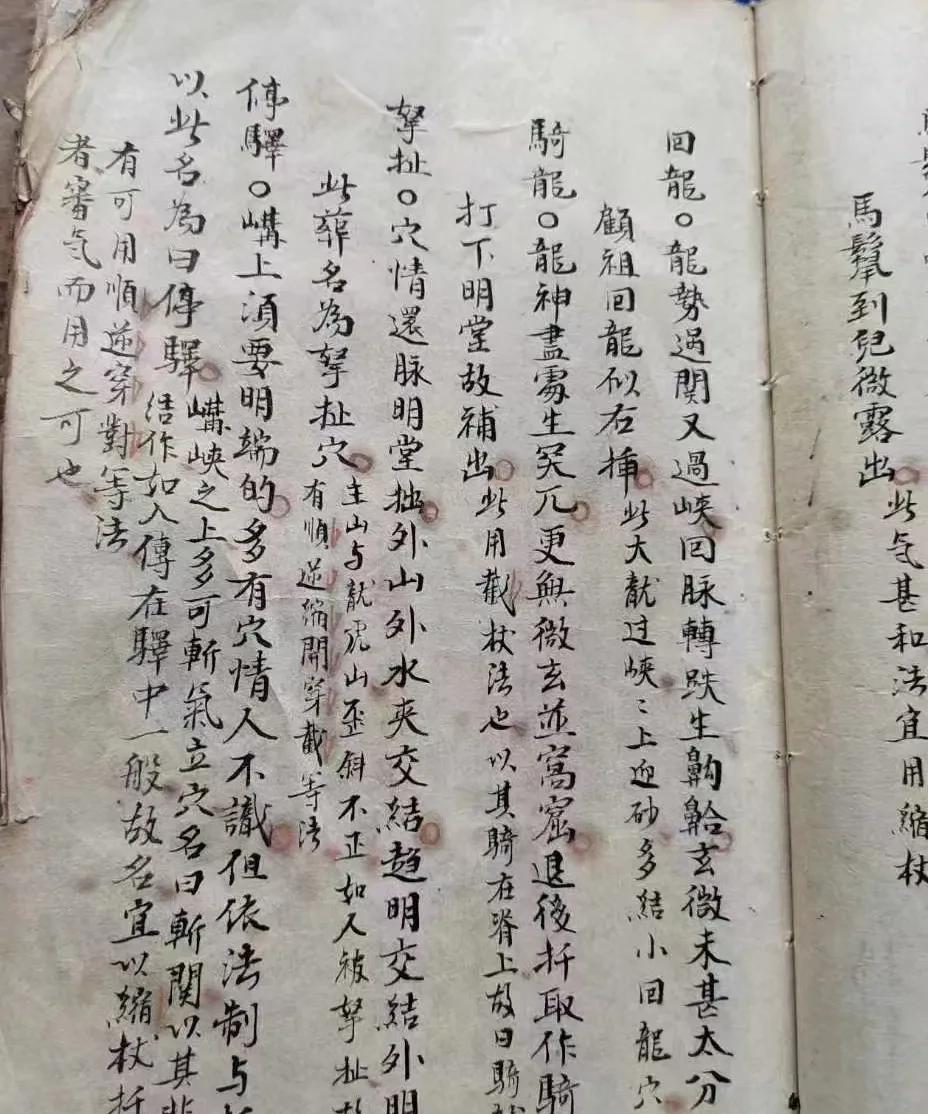 馬鬃到兒微露出此气甚和法宜用縮杖
回龍○龍勢過関又過峽回脉轉跌生齁䶎玄微未甚太分
顧祖回龍似右揷此大龍过峽〻上迎砂多結小回龍穴
騎龍○龍神盡處生突兀更無微玄並窩窟退後扦取作騎
打下明堂故補出此用截杖法也以其騎在脊上故曰騎龍
拏扯○穴情還脉明堂拙外山外水夾交結趙明交結外明
此葬名為拏扯穴主山与龍虎山歪斜不正如人被拏扯故
有順逆縮開穿截等法
停驛○嶹上須要明端的多有穴情人不識但依法制与
以此名為曰停驛嶹峽之上多可斬氣立穴名曰斬関以其
結作如人傳在驛中一般故名宜以縮杖扦
有可用順逆穿對等法
者審气而用之可也